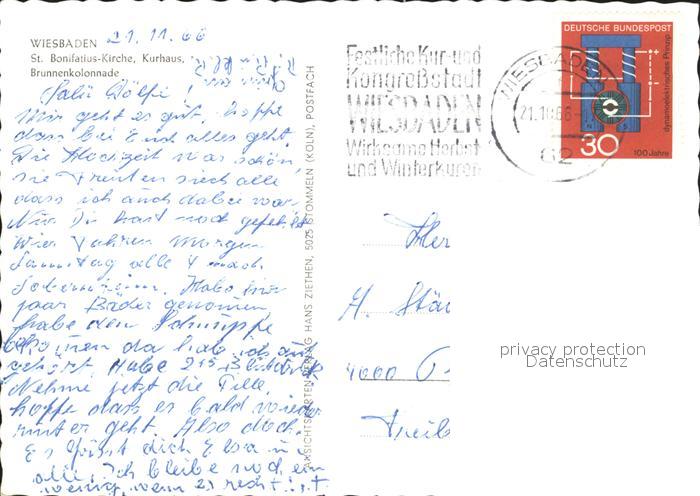 WIESBADEN 21.11.66
St. Bonifatius-Kirche, Kurhaus,
Brunnenkolonnade
Salü Dölfi!
Mir geht es gut, hoffe
dass bei Euch alles geht.
Die Hochzeit war schön,
sie freuten sich alle
dass ich auch dabei war.
Nur Du hast noch gefehlt
Wir fahren morgen
Samstag alle 4 nach
Habe ein
paar Bäder genommen
habe den Schnupfe
da hab ich
gehört. Habe 215 Blutdruck
Nehme jetzt die
hoffe dass es bald wieder
runter geht. Also doch.
Es grüsst dich Elsa u
alle. Ich bleibe noch ein
wenig wenn es recht ist.
ANSICHTSKARTENVERLAG HANS ZIETHEN, 5025 STOMMELN (KÖLN), POSTFACH
Festliche Kur-und
Kongreßstadt
WIESBADEN
Wirksame Herbst
und Winterkuren
WIESBADEN
21.11.66
62
DEUTSCHE BUNDESPOST
dynamoelektrisches Prinzip
30
100 Jahre
Her
A. Stä
4000
privacy protection
Datenschutz